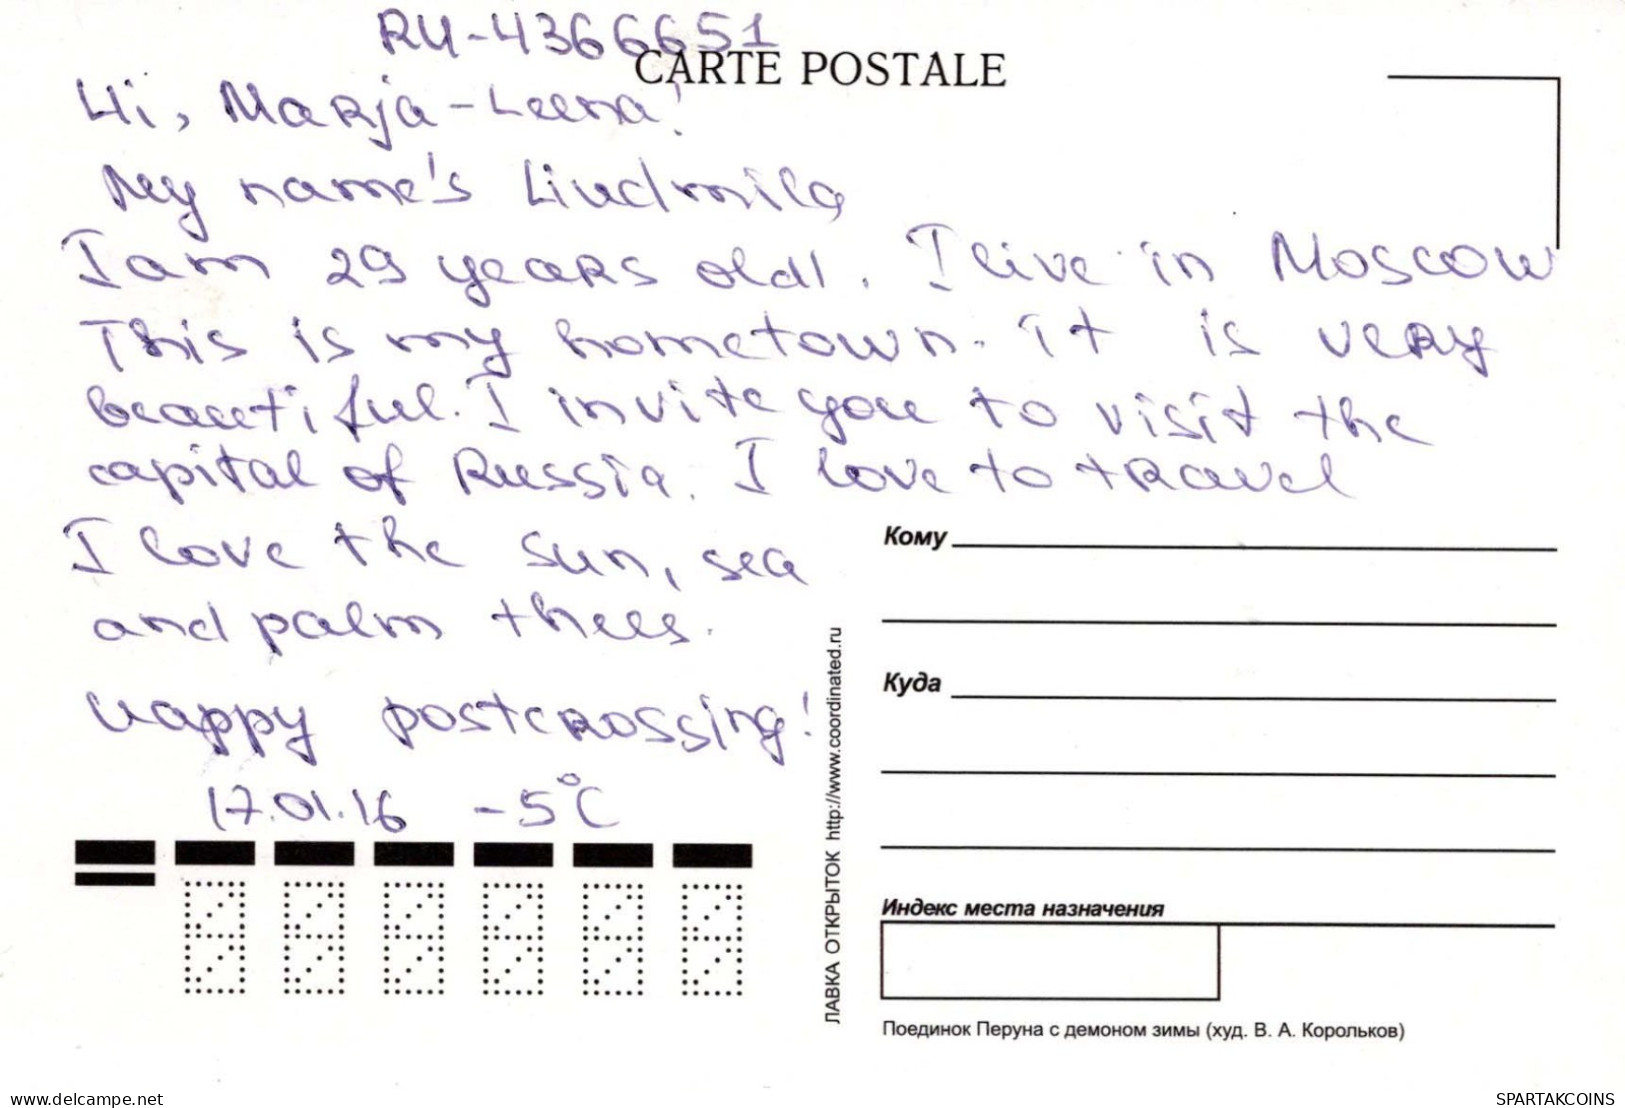 RU-4366651
CARTE POSTALE
Hi, Marja-Leena!
My name's Liudmila
I am 29 years old. I live in Moscow
This is my hometown. it is very
beautiful. I invite you to visit the
capital of Russia. I love to travel
I love the sun, sea
and palm thees.
Happy postcrossing!
17.01.16 -5°C
Кому
Куда
Индекс места назначения
ЛАВКА ОТКРЫТОК http://www.coordinated.ru
Поединок Перуна с демоном зимы (худ. В. А. Корольков)
www.delcampe.net
SPARTAKCOINS